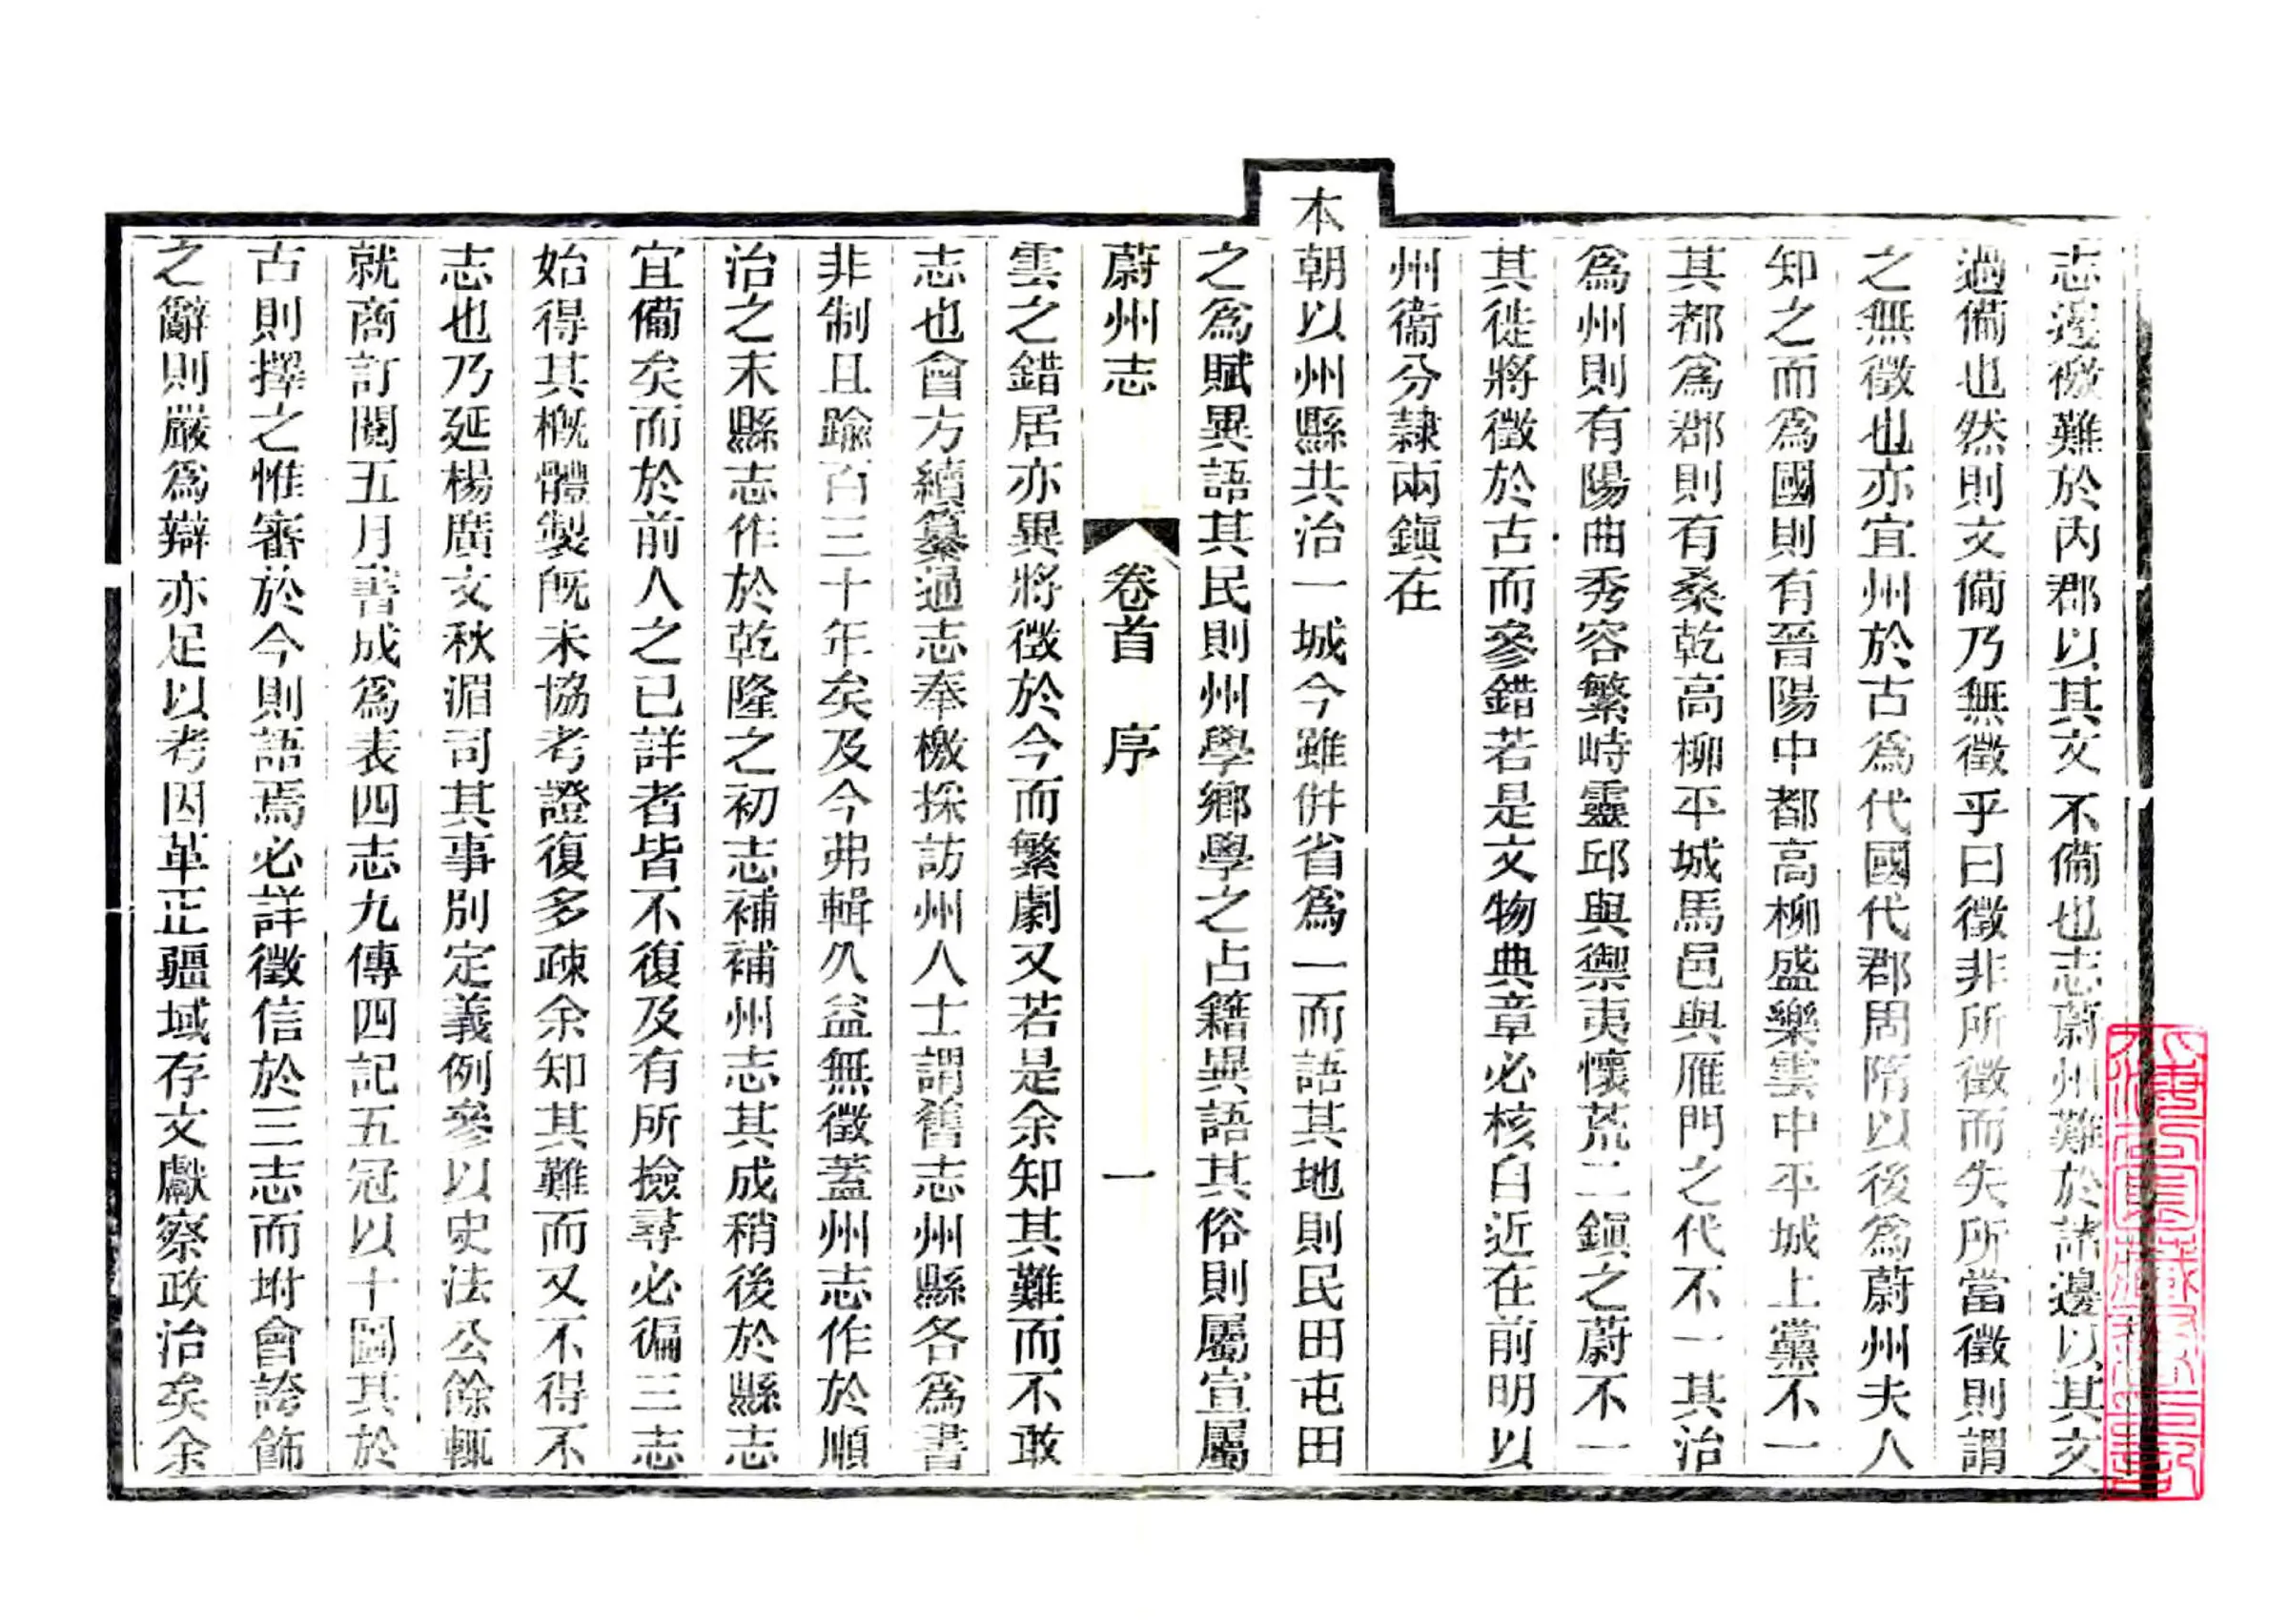 志邊徼難於內郡以其文不備也志蔚州難於諸邊以其文
過備也然則文備乃無徵乎曰徵非所徵而失所當徵則謂
之無徵也亦宜州於古爲代國代郡周隋以後爲蔚州夫人
知之而爲國則有晉陽中都高柳盛樂雲中平城上黨不一
其都爲郡則有桑乾高柳平城馬邑與雁門之代不一其治
爲州則有陽曲秀容繁峙靈邱與禦夷懷荒二鎭之蔚不一
其徙將徵於古而參錯若是文物典章必核自近在前明以
州衞分隷兩鎭在
本朝以州縣共治一城今雖併省爲一而語其地則民田屯田
之爲賦異語其民則州學鄉學之占籍異語其俗則屬宣屬
蔚州志 卷首 序 一
雲之錯居亦異將徵於今而繁劇又若是余知其難而不敢
志也會方續纂通志奉檄採訪州人士謂舊志州縣各爲書
非制且踰百三十年矣及今弗輯久益無徵蓋州志作於順
治之末縣志作於乾隆之初志補補州志其成稍後於縣志
宜備矣而於前人之已詳者皆不復及有所撿尋必徧三志
始得其槪體製旣未協考證復多疎余知其難而又不得不
志也乃延楊廣文秋湄司其事別定義例參以史法公餘輒
就商訂閱五月書成爲表四志九傳四記五冠以十圖其於
古則擇之惟審於今則語焉必詳徵信於三志而坿會誇飾
之辭則嚴爲辯亦足以考因革正疆域存文獻察政治矣余